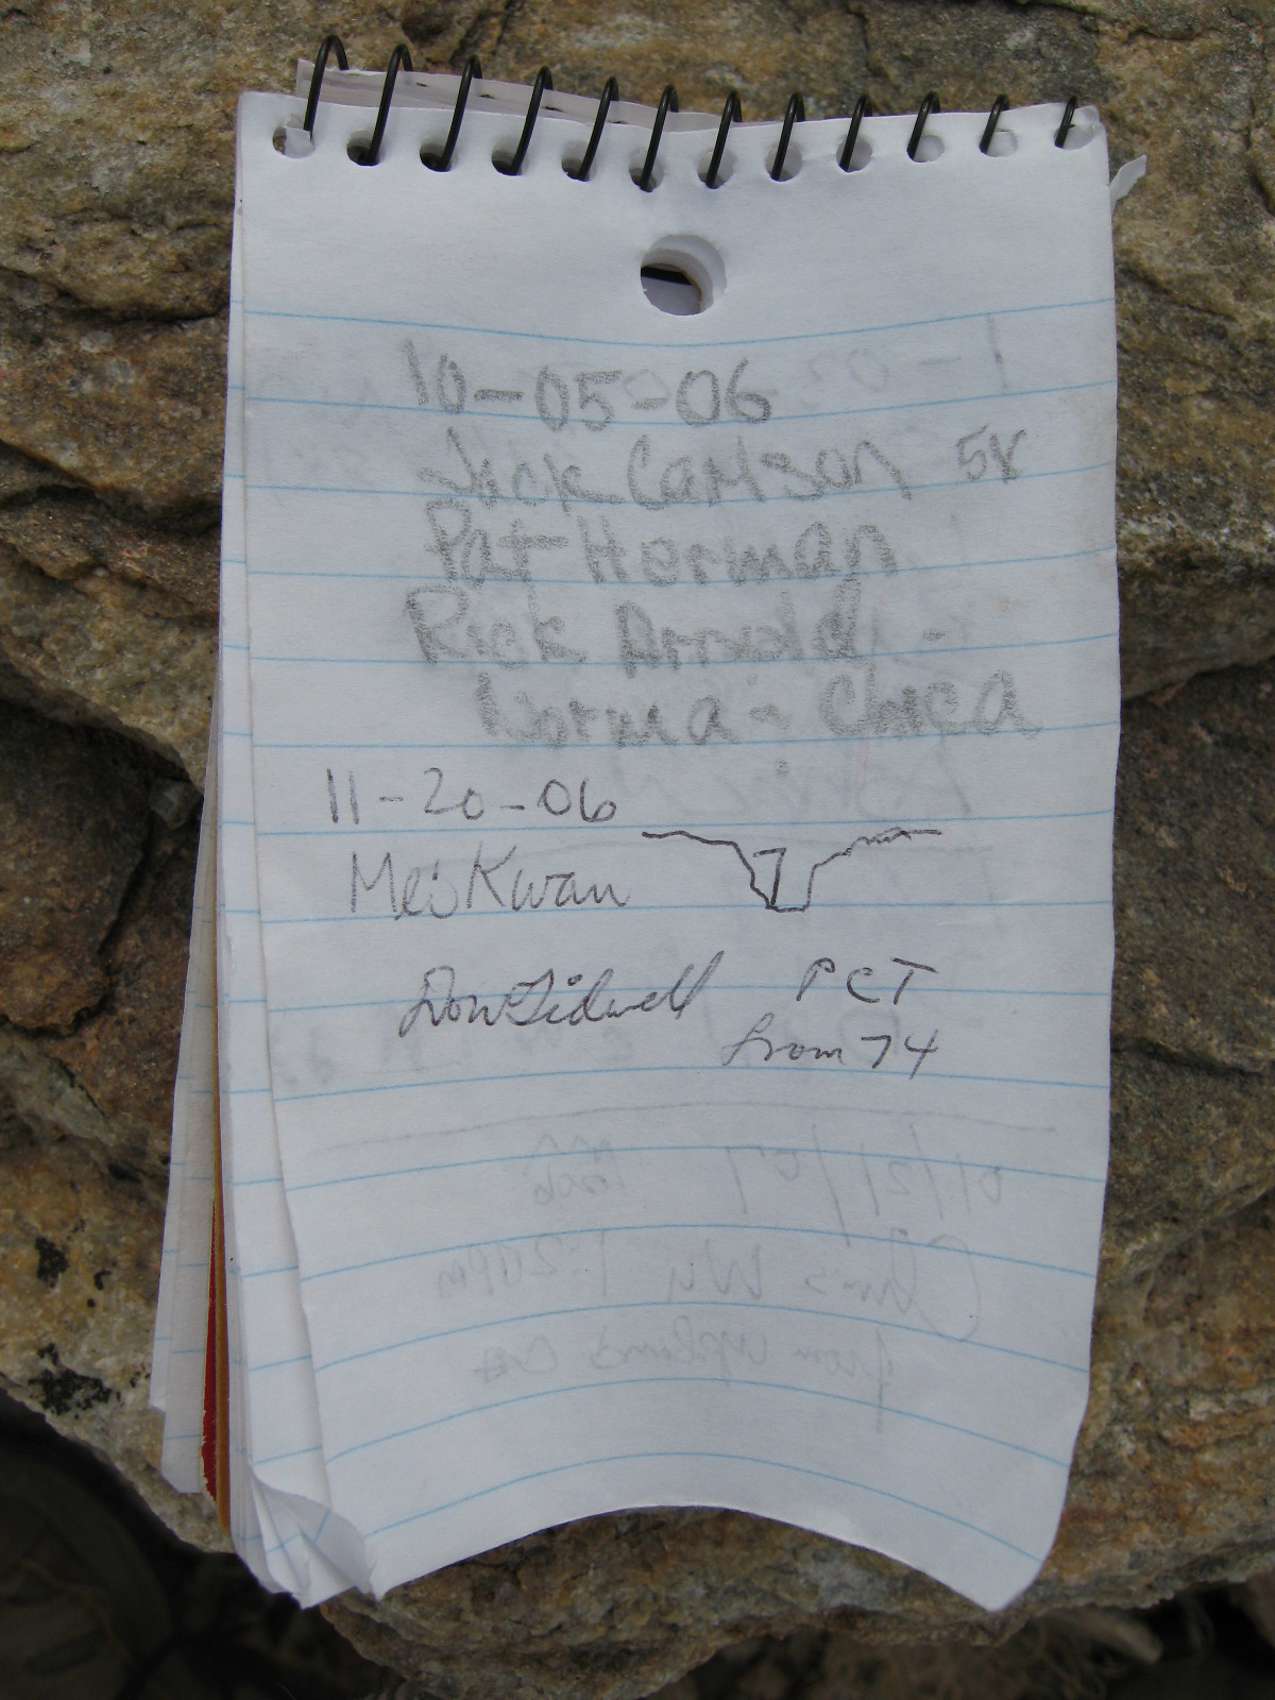 10-05-06
Jack Carlson 58
Pat Herman
Rick Arnold -
Norma - Chica
11-20-06
Mei Kwan
Don Tidwell PCT
from 74